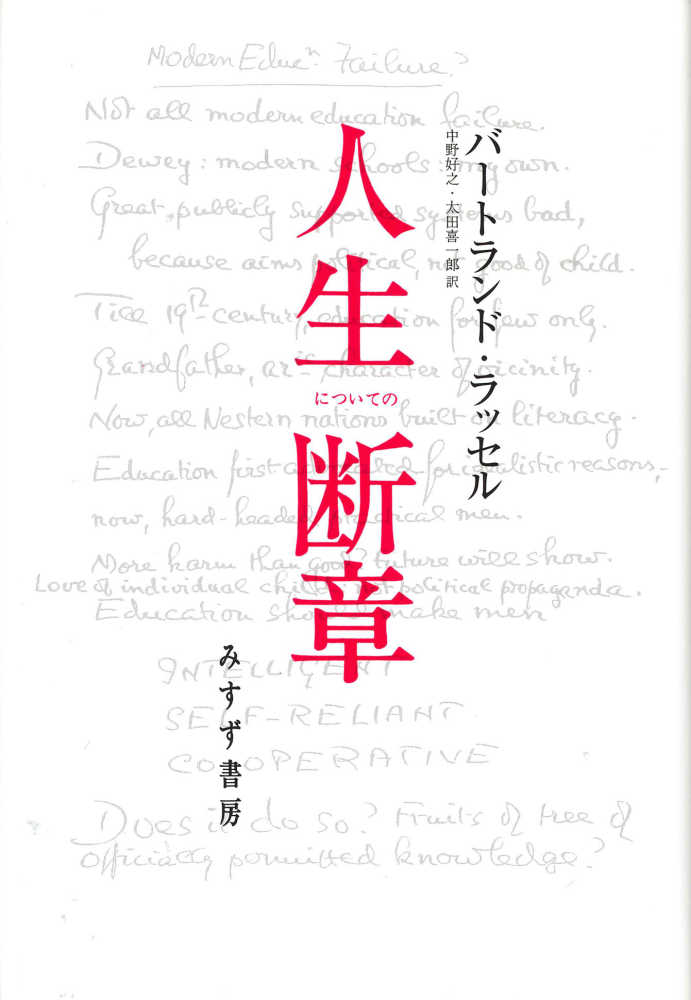 バートランド・ラッセル
中野好之・太田喜一郎 訳
人生についての断章
みすず書房
Modern Educn. Failure?
Not all modern education failure.
Dewey: modern schools: my own.
Great, publicly supported systems bad,
because aims political, not good of child.
Till 19th century, education for few only.
Grandfather, as character of vicinity.
Now, all Western nations built on literacy.
Education first advocated for idealistic reasons,
now, hard-headed practical men.
More harm than good? Future will show.
Love of individual child, not political propaganda.
Education should make men
INTELLIGENT
SELF-RELIANT
CO-OPERATIVE
Does it do so? Fruits of tree of
officially permitted knowledge?